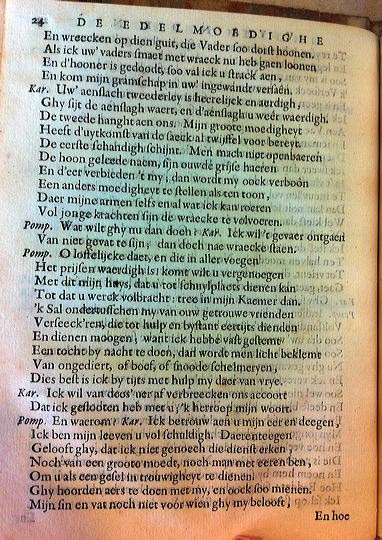 24 DE EDELMOEDIGHE
En wreecken op dien guit, die Vader soo dorst hoonen.
Als ick uw' vaders smaet met wraeck nu heb gaen loonen.
En d'hooner is gedoodt, soo val ick u strack aen,
En kom mijn gramschap in uw' ingewandt versaên.
Kar. Uw' aenslach tweederley is heerelijck en aerdigh,
Ghy sijt de aenslagh waert, en d'aenslagh u weêr waerdigh.
De tweede hanght aen ons. Mijn groote moedigheyt
Heeft d'uytkomst van de saeck al twijffel voor bereyt.
De eerste schandigh schijnt. Men mach niet openbaeren
De hoon geleende naem, sijn ouwde grijse haeren
En d'eer verbieden 't my; dan wordt my oock verboôn
Een anders moedigheyt te stellen als ten toon,
Daer mijne armen selfs en al wat ick kan roeren
Vol jonge krachten sijn de wraecke te volvoeren.
Pomp. Wat wilt ghy nu dan doch? Kar. Ick wil 't gevaer ontgaen
Van niet gevat te sijn; dan doch nae wraecke staen.
Pomp. O loffelijcke daet, en die in aller voegen
Het prijsen waerdigh is: komt wilt u vergenoegen
Met dit mijn huys, dat u tot schuylplaets dienen kan
Tot dat u werck volbracht: tree in mijn Kaemer dan.
'k Sal ondertusschen my van ouw getrouwe vrienden
Verseeck'ren, die tot hulp en bystant eertijts dienden
En dienen moogen; want ick hebbe vast gestemt
Een tocht by nachte te doen, daer wordt men licht beklemt
Van ongediert, of boef, of snoode schelmeryen,
Dies best is ick by tijts met hulp my daer van vrye.
Kar. Ick wil van dees' uer af verbreecken ons accoort
Dat ick geslooten heb met u; 'k herroep mijn woort.
Pomp. En waerom? Kar. Ick betrouw aen u mijn eer en deegen,
Ick ben mijn leeven u vol schuldigh. Daerenteegen
Gelooft ghy, dat ick niet genoech die dienst erken,
Noch van een groote moedt, noch man met eeren ben,
Om u als een gesel in trouwigheyt te dienen.
Ghy hoorden aers te doen met my, en oock soo mienen.
Mijn sin en vat noch niet voor wien ghy my belooft,
En hoe